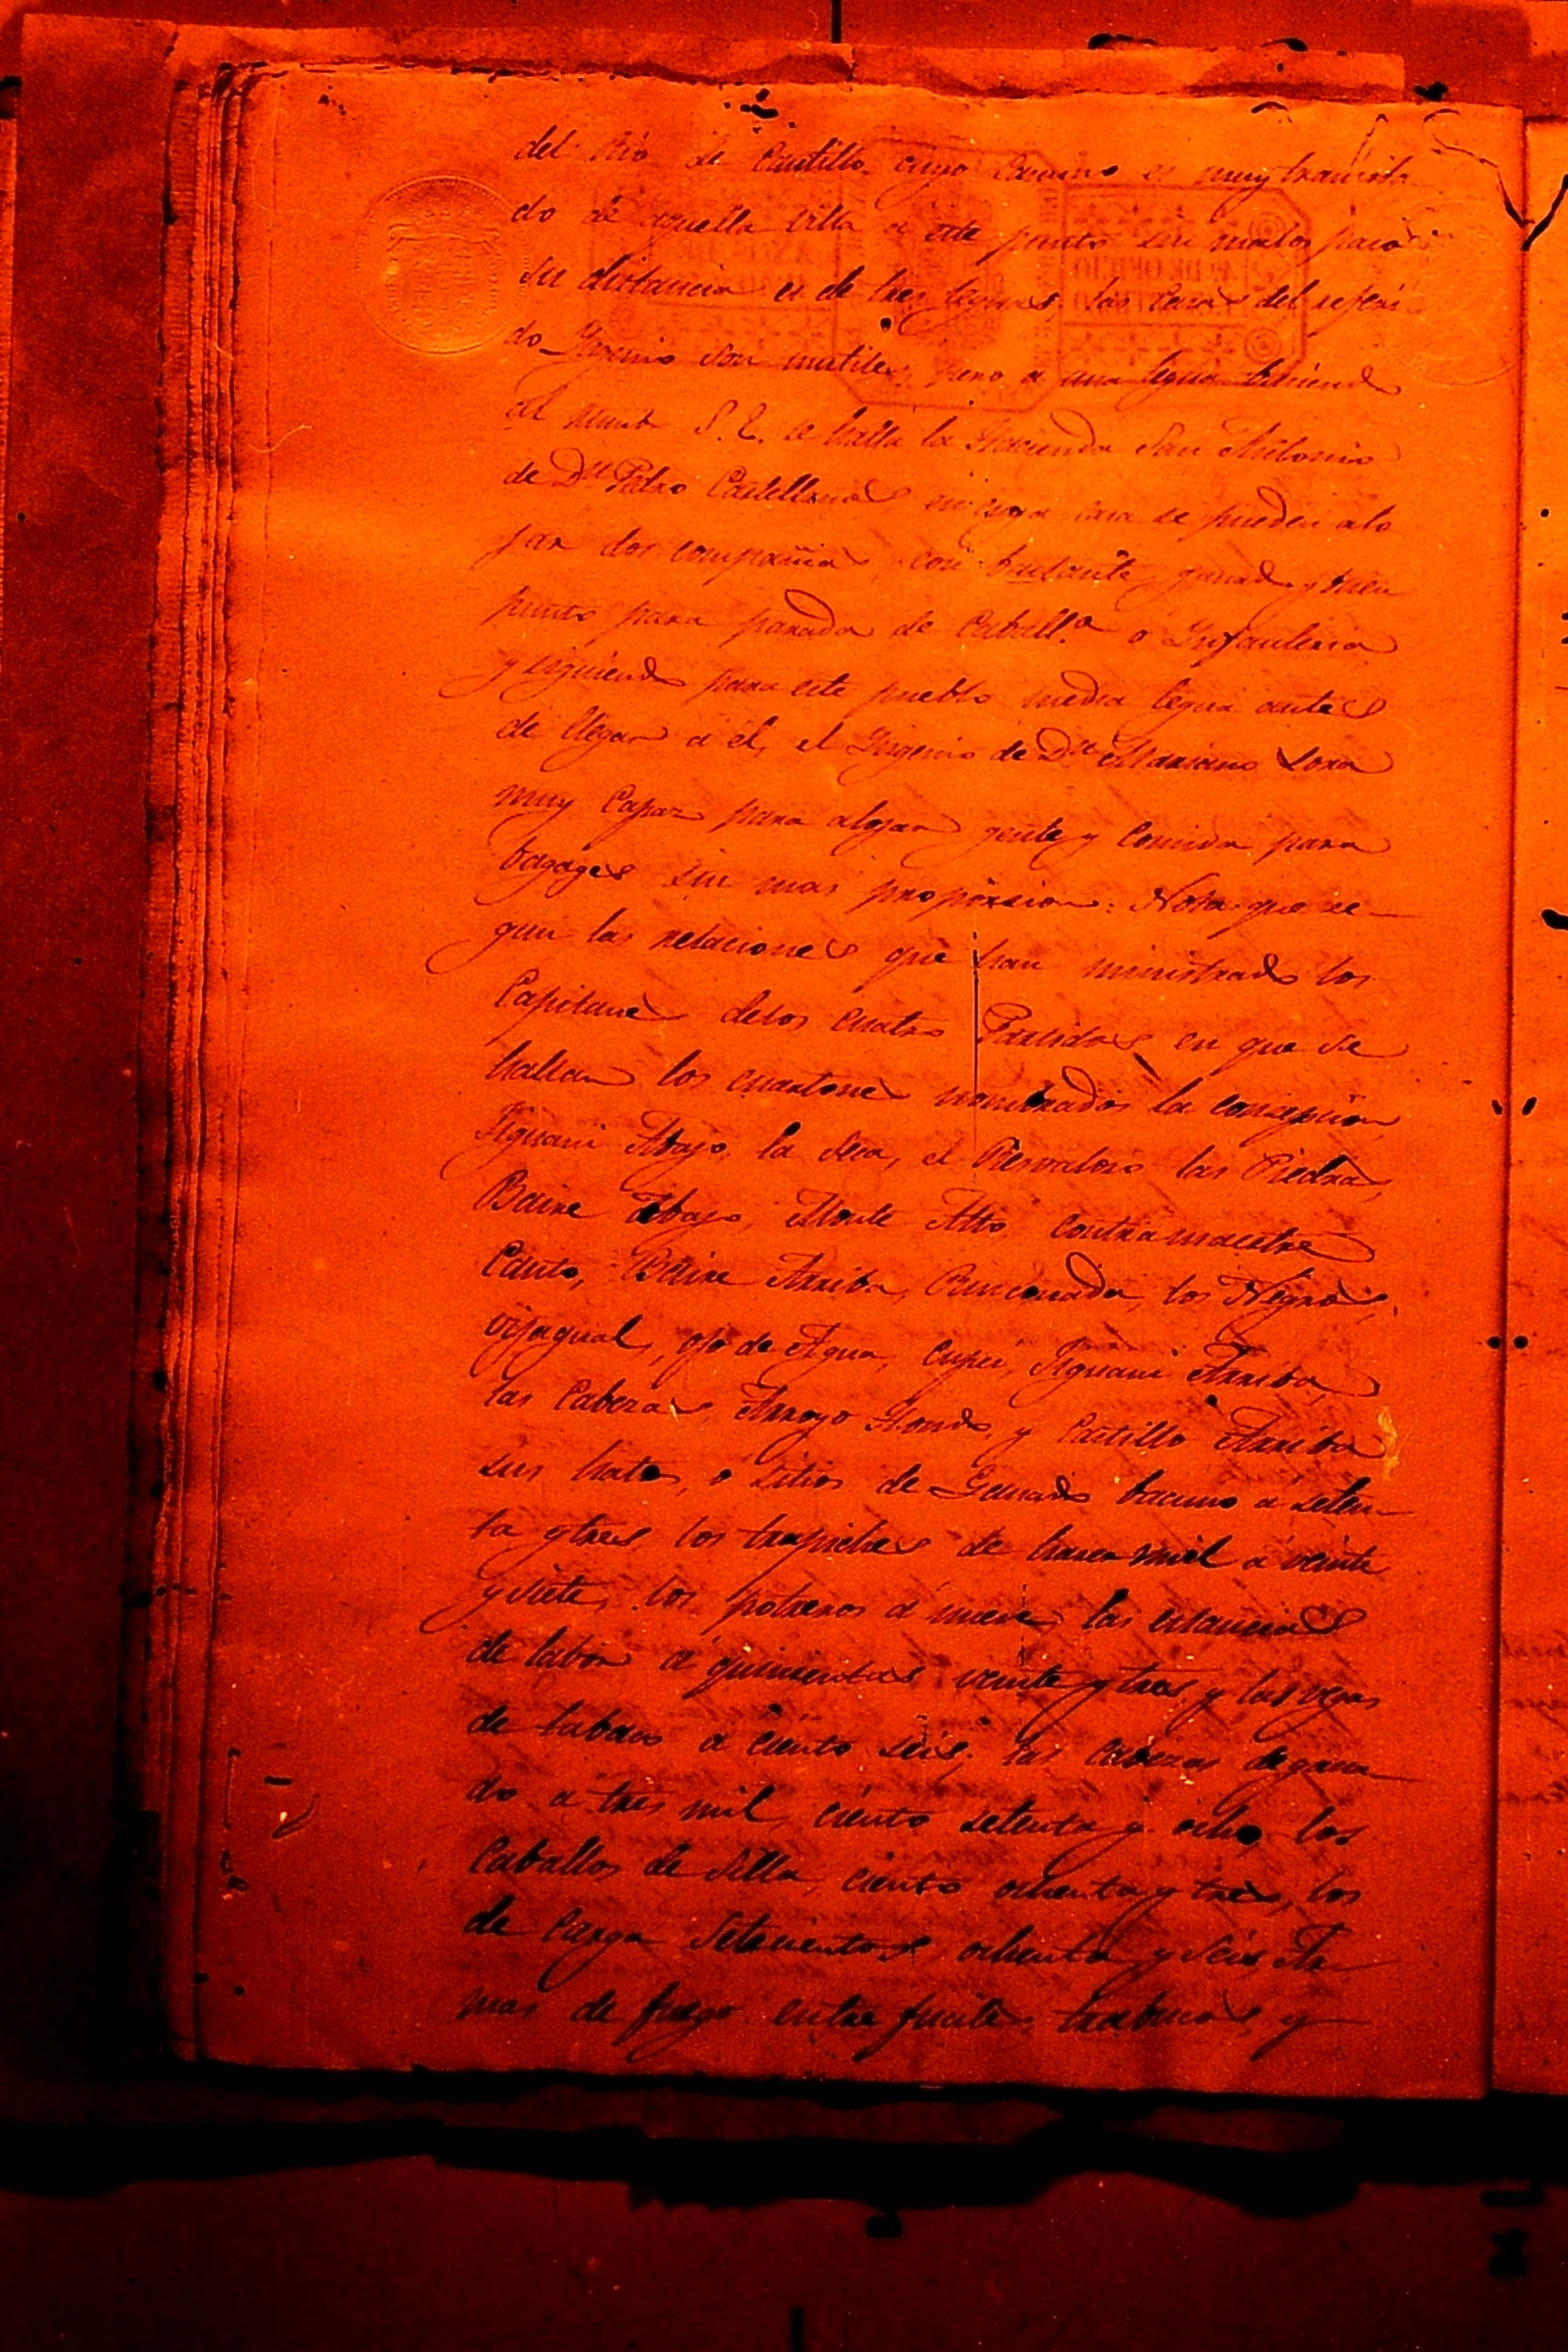 del Rio de Cautillo, cuyo camino es muy transita
do de aquella villa á este punto sin malos pasos
su distancia es de tres leguas. las casas del referi
do Ingenio son inutiles, pero a una legua biniend
al S. E. se halla la Hacienda San Antonio
de Dn Pedro Castellanos en cuya casa se pueden alo
jar dos compañias con bastante ganado y buen
punto para parada de Caball.a o Infanteria
y siguiendo para este pueblo media legua antes
de llegar á él, el Ingenio de Dn Mariano Lora
muy capaz para alojar gente y comida para
bagages sin mas proporsion. Nota que se
gun las relaciones que han ministrado los
Capitanes delos cuatro Partidos en que se
hallan los cuartones nombrados la consepsion
Jiguani Abajo, la Seca, el las Piedras,
Baire Abajo, Monte Alto, contramaestre
Cauto, Baire Arriba, Rinconada, los Negros,
vijagual, ojo de Agua, cupei, Jiguani Arriba,
las Cabezas, Arroyo Hondo, y Cautillo Arriba
sus hatos, o sitios de Ganado bacuno a seten
ta y tres los trapiches de haser miel a veinte
y siete, los potreros á nueve, las estancias
de labor á quinientas veinte y tres y las vegas
de tabaco a ciento seis, las cabezas de gana
do a tres mil, ciento setenta y ocho, los
Caballos de silla, ciento ochenta y tres, los
de carga Setecientos ochenta y seis, Ar
mas de fuego entre fuciles, trabucos, y